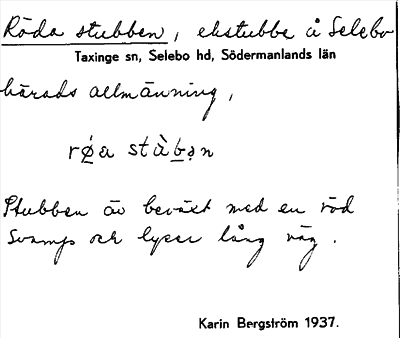 Röda stubben, ekstubbe å Selebo
Taxinge sn, Selebo hd, Södermanlands län
härads allmänning,
rø̀a stàbən
Stubben äv beväxt med en röd
svamp och lyser lång väg.
Karin Bergström 1937.